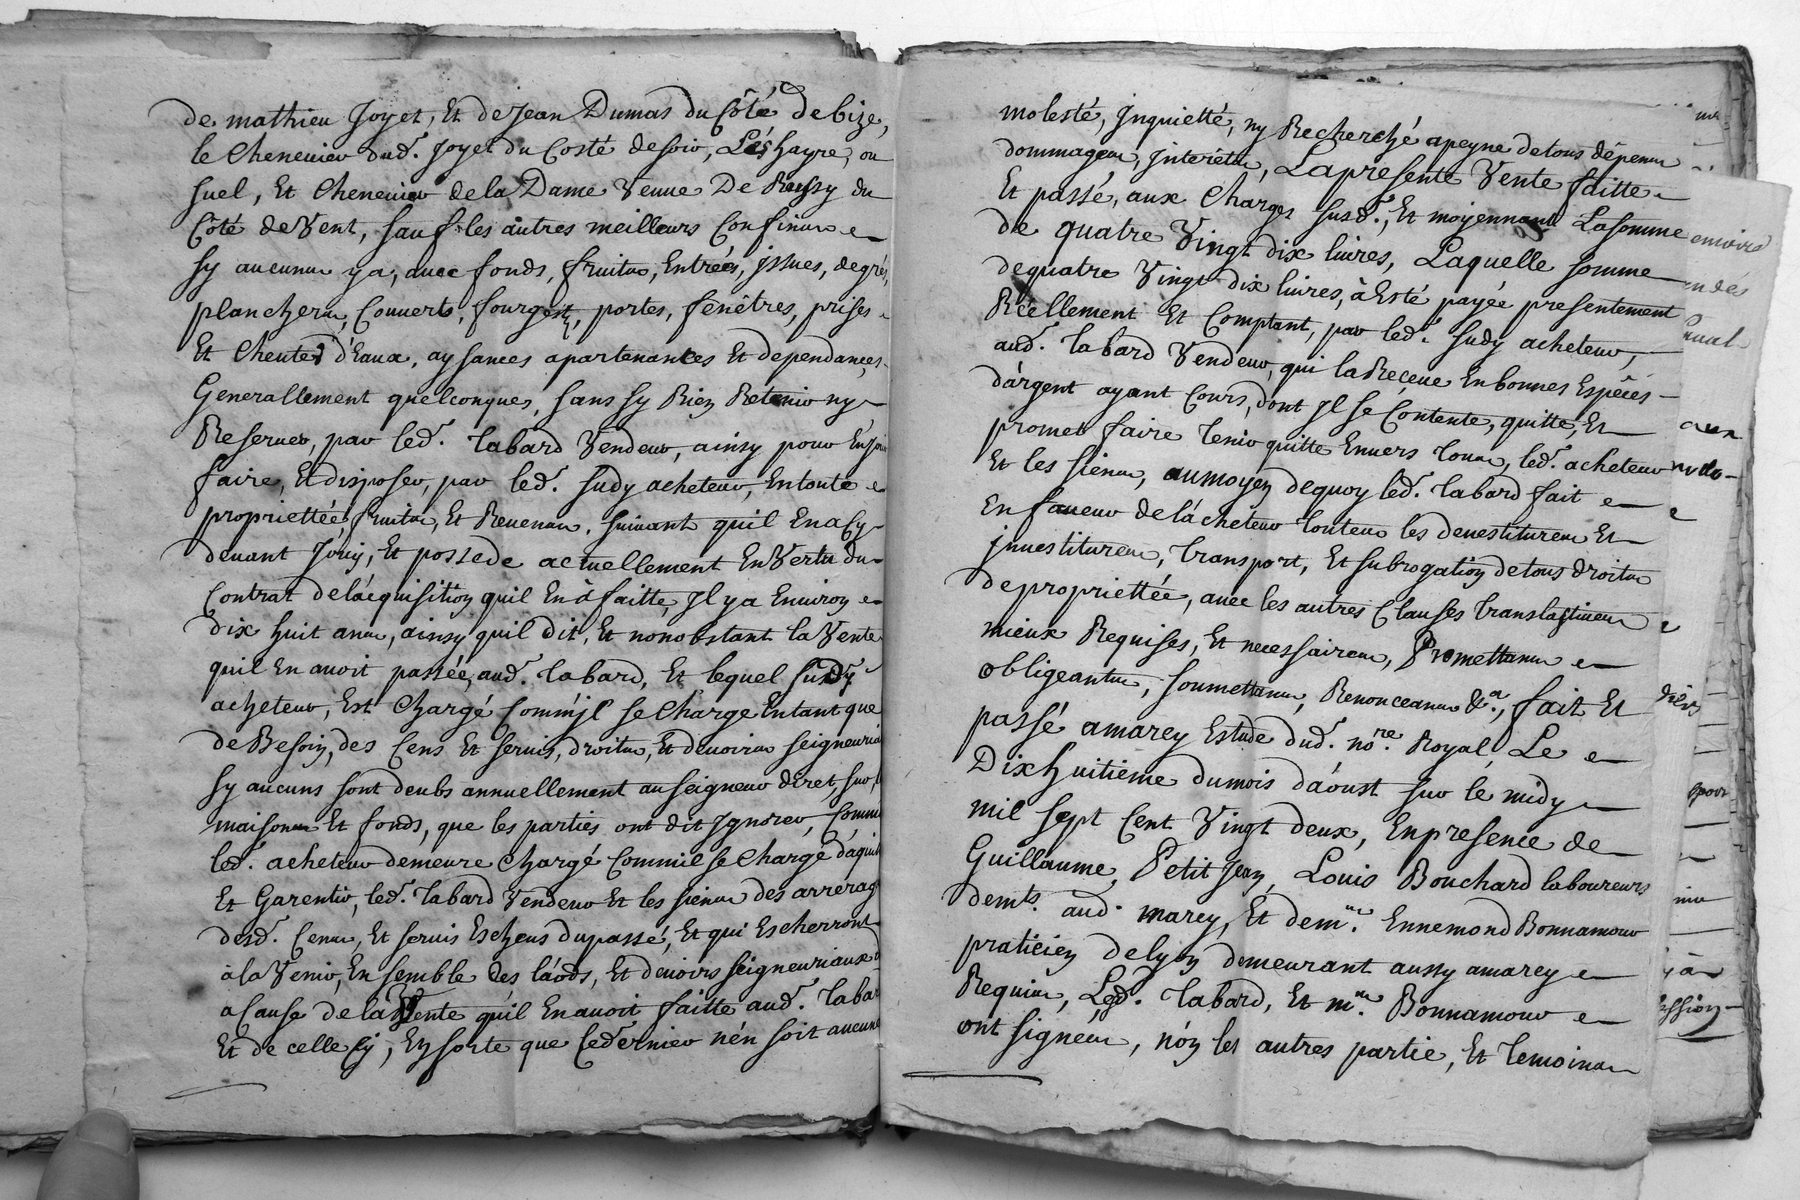 de mathieu Joyet, Et de Jean Dumas du Côté de bize,
le Chenevier dud. Joyet du Costé de soir, Les hayre, ou
suel, Et Chenevier de la Dame Veuve De Ressy du
Côté de Vent, sauf les autres meilleurs Confins
sy aucuns ya, avec fonds, fruits, Entrées, jssues, degrés,
planchers, Couverts, fourgests, portes, fenêtres, prises
Et Cheutes d'Eaux, aysances apartenantes Et dependances
Generallement quelconques, sans sy Rien Retenir ny
Reserver, par led. tabard Vendeur, ainsy pour En jouir
faire, Et disposer, par led. sudy acheteur, En toute
propriettée, fruits, Et Revenus, suivant quil En a cy
devant Jouy, Et possede actuellement En Vertu du
Contrat de láçquisition quil En à faitte, Jl y a Environ
dix huit ans, ainsy quil dit, Et nonobstant la Vente
quil En avoit passée aud. tabard, Et lequel sudy
acheteur, Est Chargé Comm'jl se Charge Entant que
de Besoin, des Cens Et servis, droits, Et devoirs seigneuria
sy aucuns sont deubs annuellement au seigneur diret, sur
maisons Et fonds, que les parties ont dit Jgnorer, Comme
led. acheteur demeure Chargé Commil se Charge dáquit
Et Garentir, led. tabard Vendeur Et les siens des arrerag
desd. Cens, Et servis Escheus du passé, Et qui Escherront
à la Venir, En semble des láods, Et devoirs seigneuriaux
a Cause de la Vente qu'il En avoit faitte aud. taba
Et de celle cy, En sorte que led ernier n'en soit aucune
molesté, jnquietté, ny Recherché apeyne de tous dépens
dommages, jnterets, La presente Vente faitte
Et passé, aux Charges susd., Et moyennant La somme
de quatre Vingt dix livres, Laquelle somme
de quatre Vingt dix livres, à Esté payée presentement
Réellement Et Comptant, par led. sudy acheteur,
aud. tabard Vendeur, qui la Reçeue En bonnes Espêces
d'argent ayant Cours, dont Jl se Contente, quitte, Et
promet faire tenir quitte Envers tous, led. acheteur
Et les siens, au moyen dequoy led. tabard fait
En faveur de lácheteur toutes les devestitures Et
jnvestitures, transport, Et subrogation de tous droits
de propriettée, avec les autres Clauses translatives
mieux Requises, Et necessaires, Promettans
obligeants, soumettans, Renonceans &a., fait Et
passé a marcy Estude dud. nore. Royal, Le
Dix huitième du mois dáoust sur le midy
mil sept Cent Vingt deux, En presence de
Guillaume, Petit Jean, Louis Bouchard laboureurs
demts. aud. marcy, Et demr. Ennemond Bonnamour
praticien de lyon demeurant aussy a marcy
Requis, Led. tabard, Et mre. Bonnamour
ont signéés, nón les autres partie, Et temoins